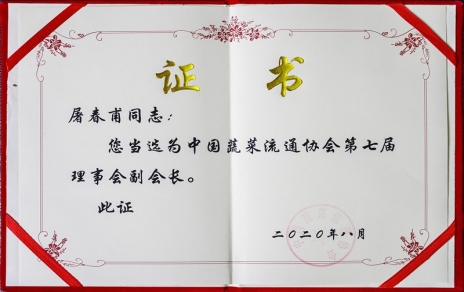 证书
屠春甫同志：
您当选为中国蔬菜流通协会第七届
理事会副会长。
此证
二〇二〇年八月